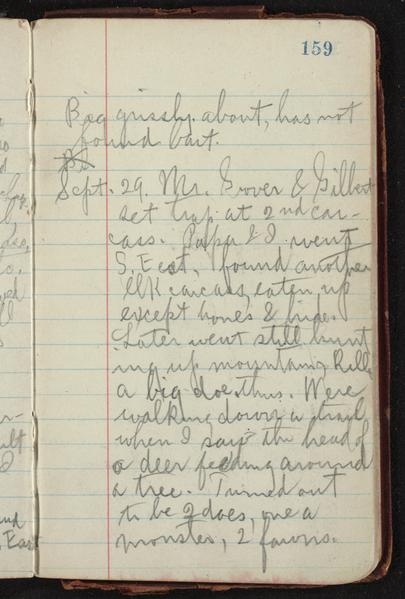 159
Big grissly about, has not
found bait.
Sept. 29. Mr. Grover & Gilbert
set trap at 2nd car-
cass. Papa & I went
S. East, found another
elk carcass, eaten up
except bones & hide.
Later went still hunt
ing up mountain, Killed
a big doe thus. Were
walking down a trail
when I saw the head of
a deer feeding around
a tree. Turned out
to be 2 does, one a
monster, 2 fawns.